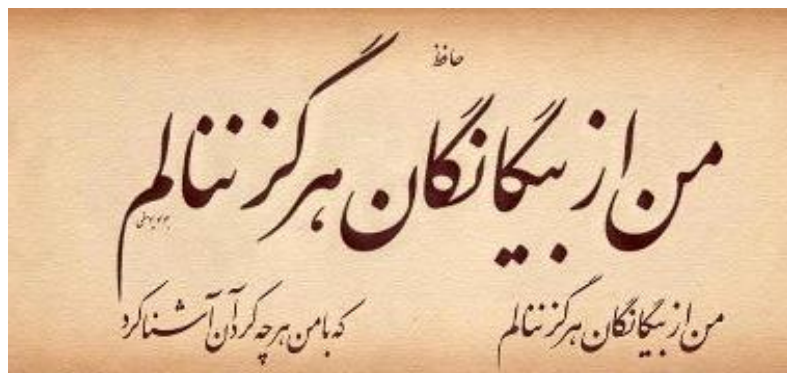 حافظ
من از بیگانگان هرگز ننالم
من از بیگانگان هرگز ننالم
که با من هر چه کرد آن آشنا کرد